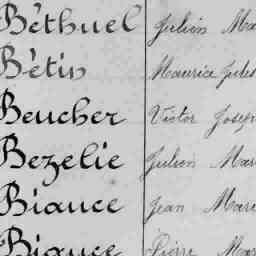 Béthuel Julien Ma
Bétis Maurice Jules
Beucher Victor Joseph
Bezelie Julien Mar
Biance Jean Mari
Biance Pierre Mar